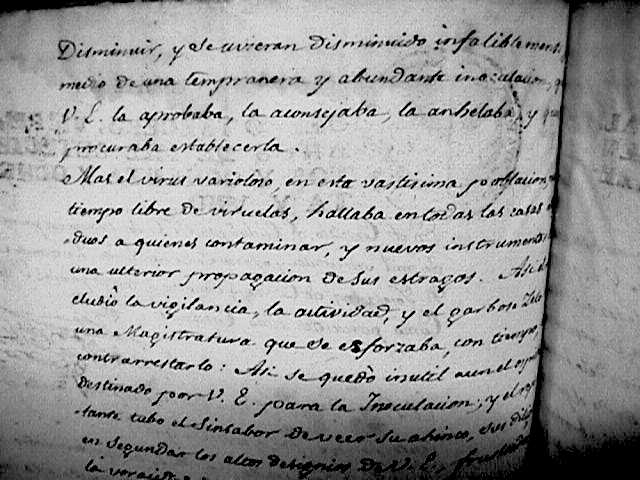 Disminuir, y se uvieran disminuido infaliblemen
medio de una tempranera y abundante inoculacion,
V. E. la aprobaba, la aconsejaba, la anhelaba, y
procuraba establecerla.
Mas el virus varioloso, en esta vastisima poblacion
tiempo libre de viruelas, hallaba en todas las casas
duos a quienes contaminar, y nuevos instrument
una ulterior propagacion de sus estragos. Asi
eludiò la vigilancia, la actividad, y el garboso Zelo
una Magistratura que se esforzaba, con tiempo,
contrarrestarlo: Asi se quedò inutil aun el
destinado por V. E. para la Inoculacion; y el
tante tubo el Sinsabor de veer su ahinco, sus
en segundar los altos designios de V. E.,
la